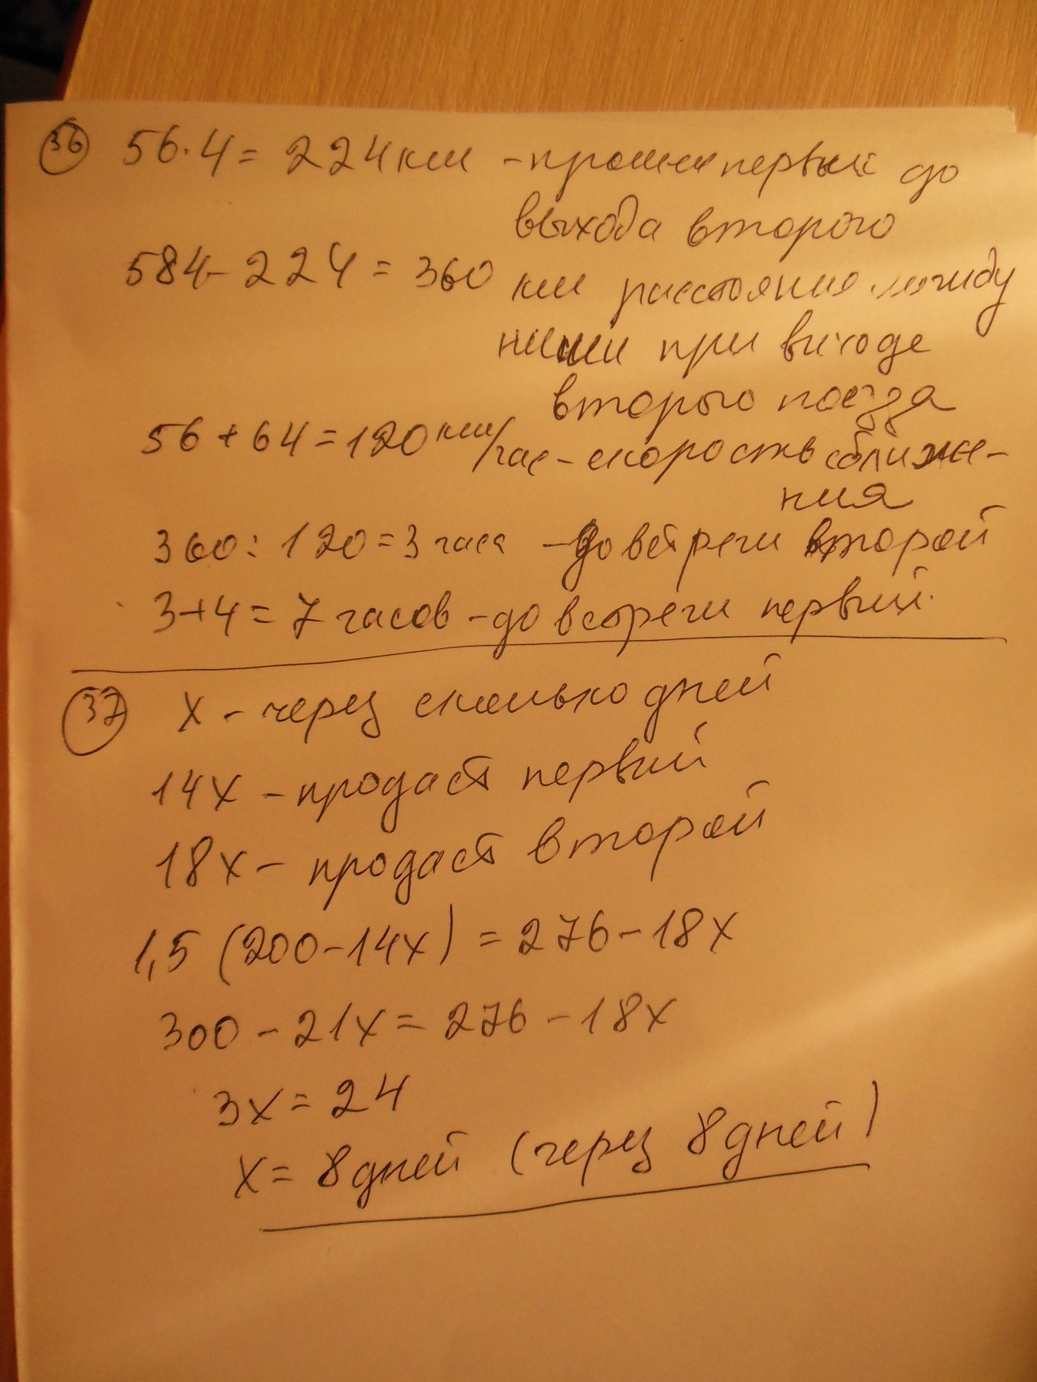 36 56·4 = 224 км – прошел первый до
выхода второго
584 – 224 = 360 км расстояние между
ними при выходе
второго поезда
56 + 64 = 120 км/час – скорость сближе-
ния
360 : 120 = 3 часа – до встречи второй
3+4 = 7 часов – до встречи первый.
37 х – через сколько дней
14х – продаст первый
18х – продаст второй
1,5 (200 – 14х) = 276 – 18х
300 – 21х = 276 – 18х
3х = 24
х = 8 дней (через 8 дней)